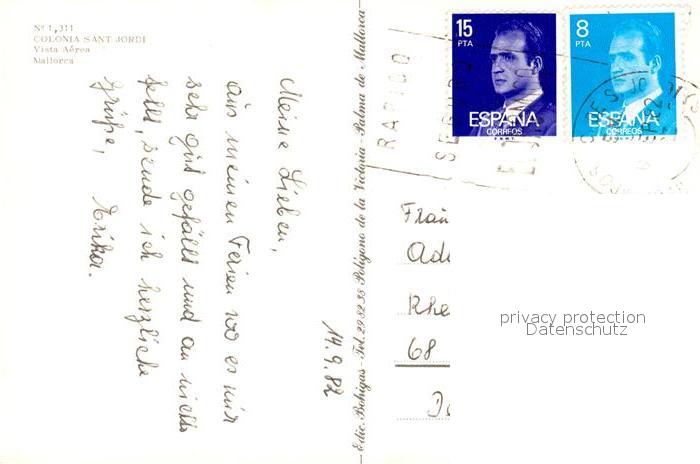 Nº 1,311
COLONIA SANT JORDI
Vista Aérea
Mallorca
Meine Lieben,
aus meinen Ferien wo es mir
sehr gut gefällt und an nichts
fehlt, sende ich herzliche
Grüße,
Erika.
14.9.82
Edic. Bohigas - Tel. 29 82 38 Polígono de la Victoria - Palma de Mallorca
15
PTA
ESPAÑA
CORREOS
8
PTA
ESPAÑA
CORREOS
RAPIDO
SEGURO
Frau
Rhe
68
privacy protection
Datenschutz